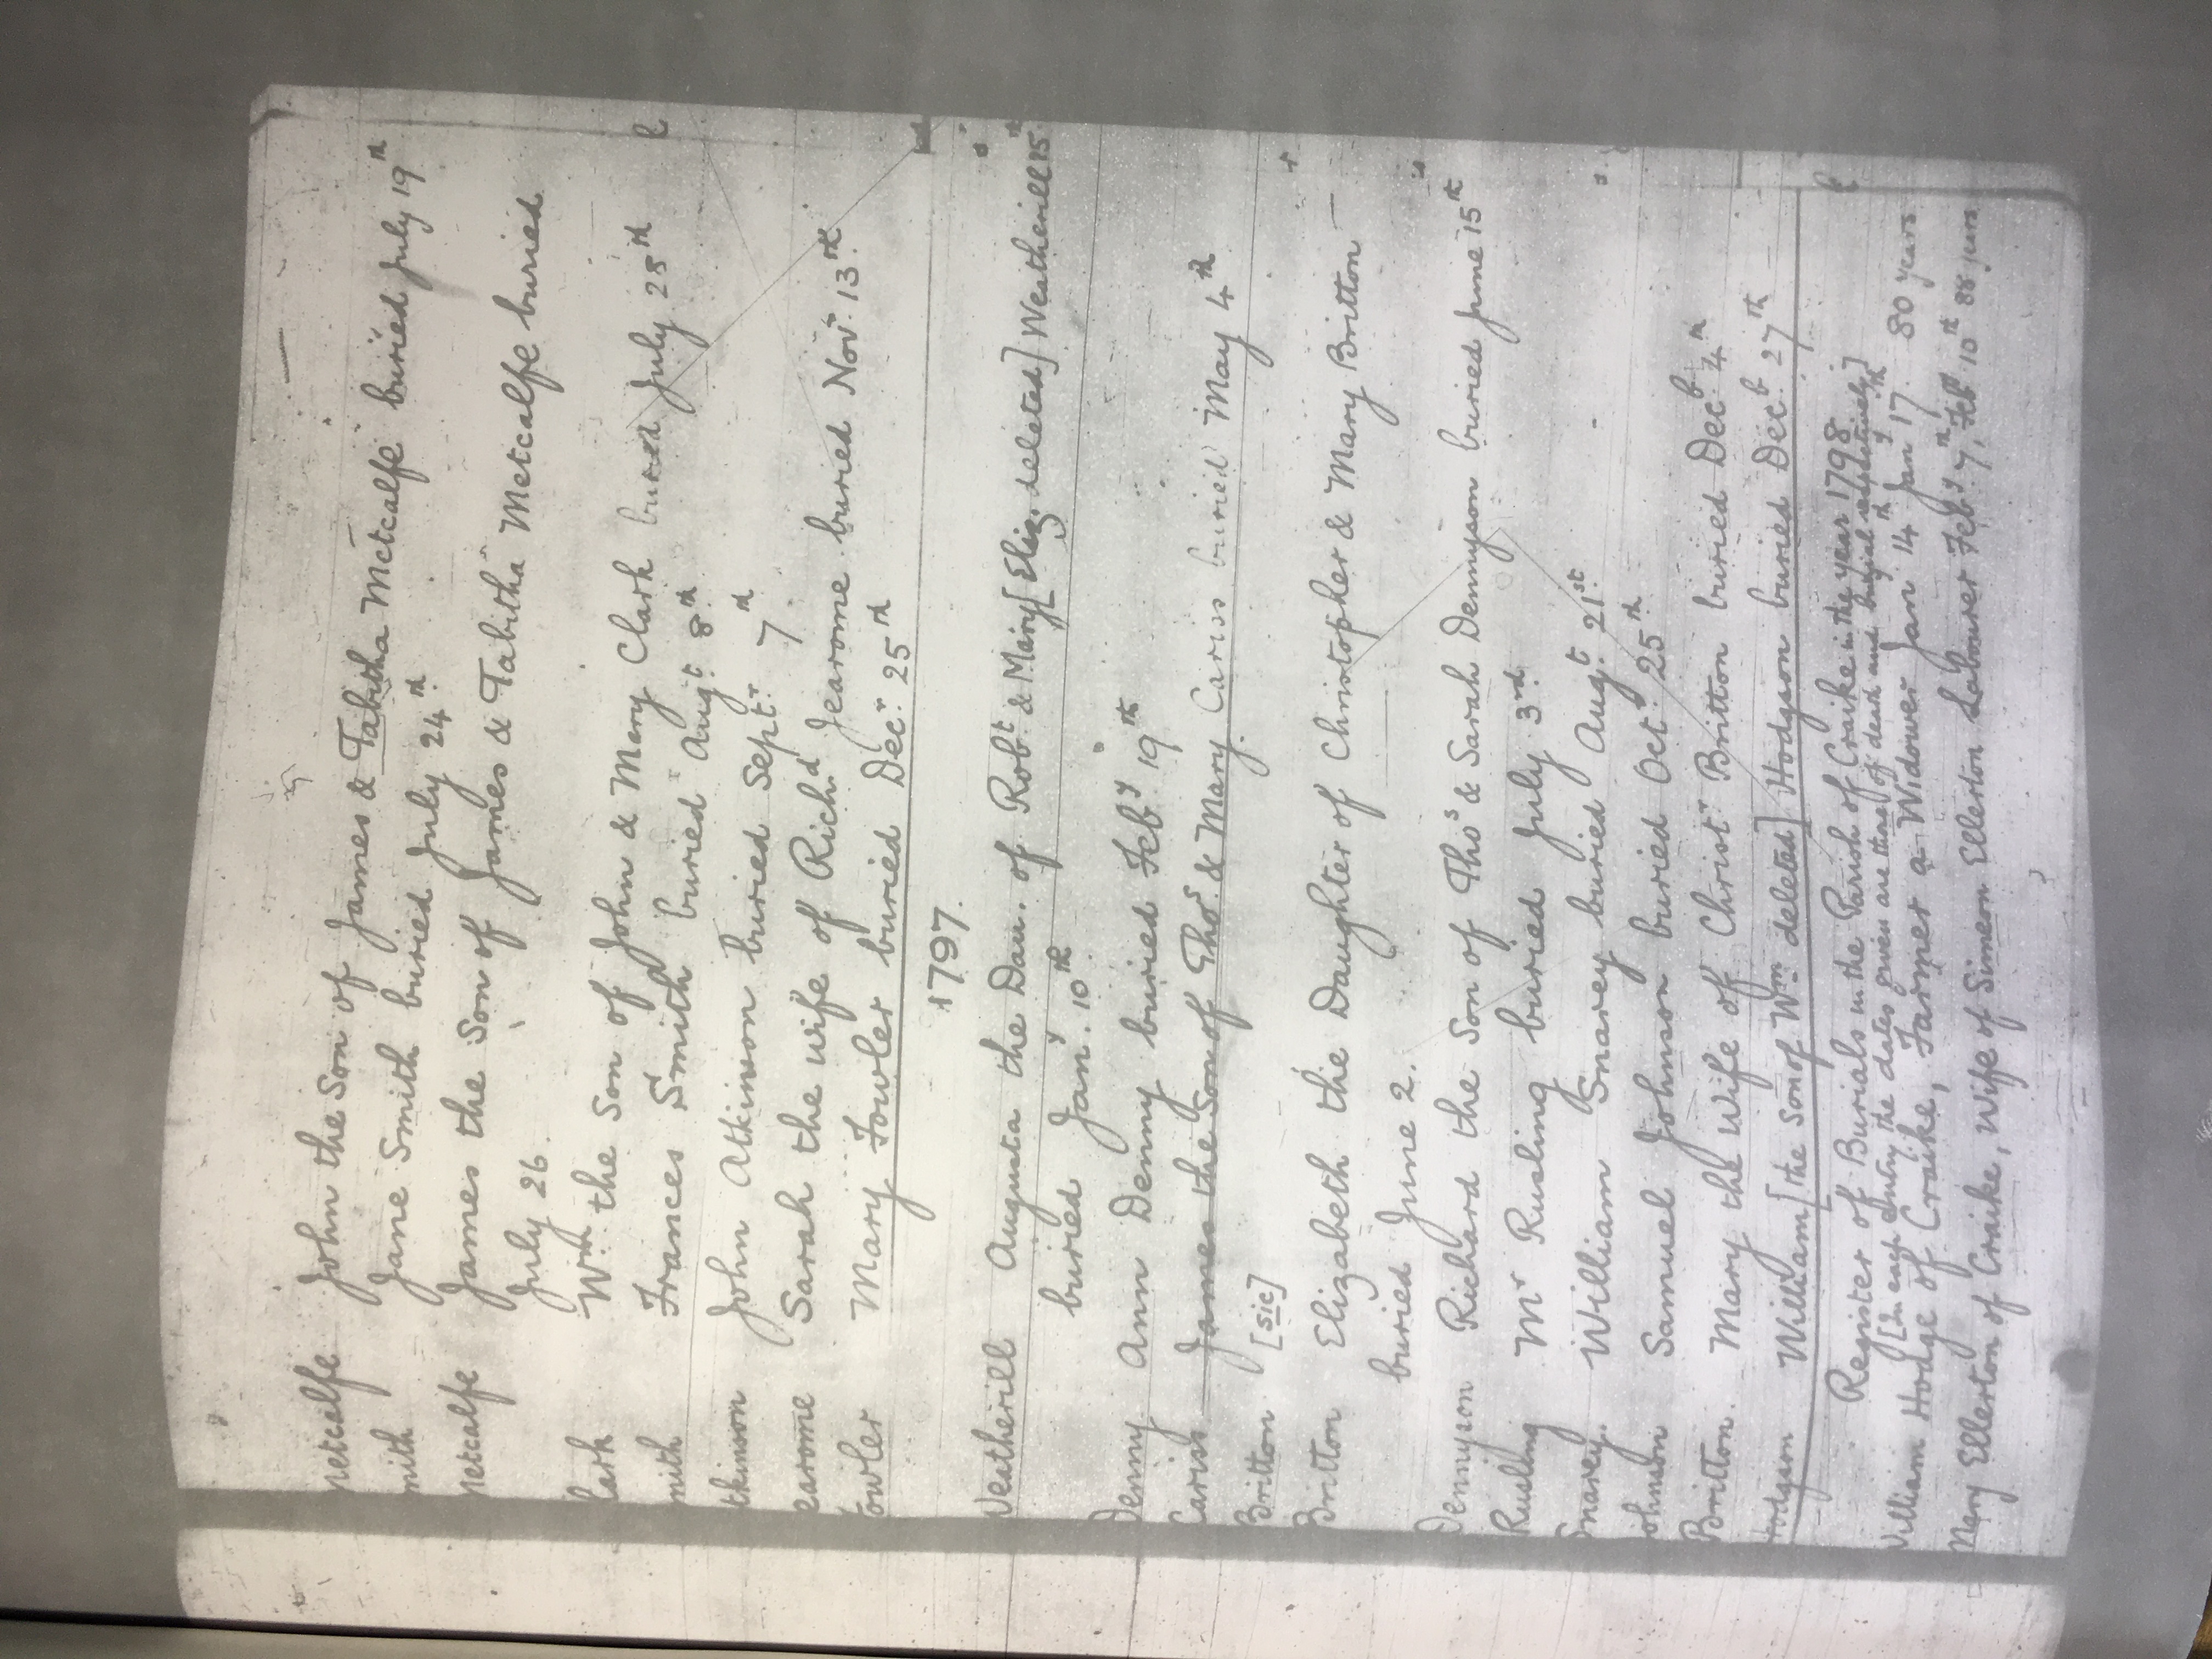 Metcalfe John the Son of James & Tabitha Metcalfe buried July 19th
mith Jane Smith buried July 24th
Metcalfe James the Son of James & Tabitha Metcalfe buried
July 26.
lark Wm the Son of John & Mary Clark buried July 28th
mith Frances Smith buried Augt 8th
tkinson John Atkinson buried Septr 7th
earome Sarah the wife of Richd Jearome buried Novr 13th
Fowler Mary Fowler buried Decr 25th
1797.
Weatherill Augusta the Dau. of Robt & Mary [Eliz. deleted] Weatherill 15th
buried Jany. 10th
Denny Ann Denny buried Feby 19th
Cariss James the Son of Thos. & Mary Cariss buried May 4th
Britton [sic]
Britton Elizabeth the Daughter of Christopher & Mary Britton —
buried June 2.
Dennyson Richard the Son of Thos & Sarah Dennyson buried June 15th
Rusling Mr Rusling buried July 3rd
Snarey. William Snarey buried Augt. 21st
ohnson Samuel Johnson buried Oct. 25th
Britton. Mary the Wife of Christr Britton buried Decb. 4th
Hodgson William [the son of Wm. deleted] Hodgson buried Decb. 27th
Register of Burials in the Parish of Craike in the year 1798
[In each entry the dates given are those of death and burial respectively]
William Hodge of Craike, Farmer a Widower Jany 14th Jany 17th 80 years
Mary Ellerton of Craike, Wife of Simeon Ellerton Labourer Feby 7th, Feby 10th 88 years